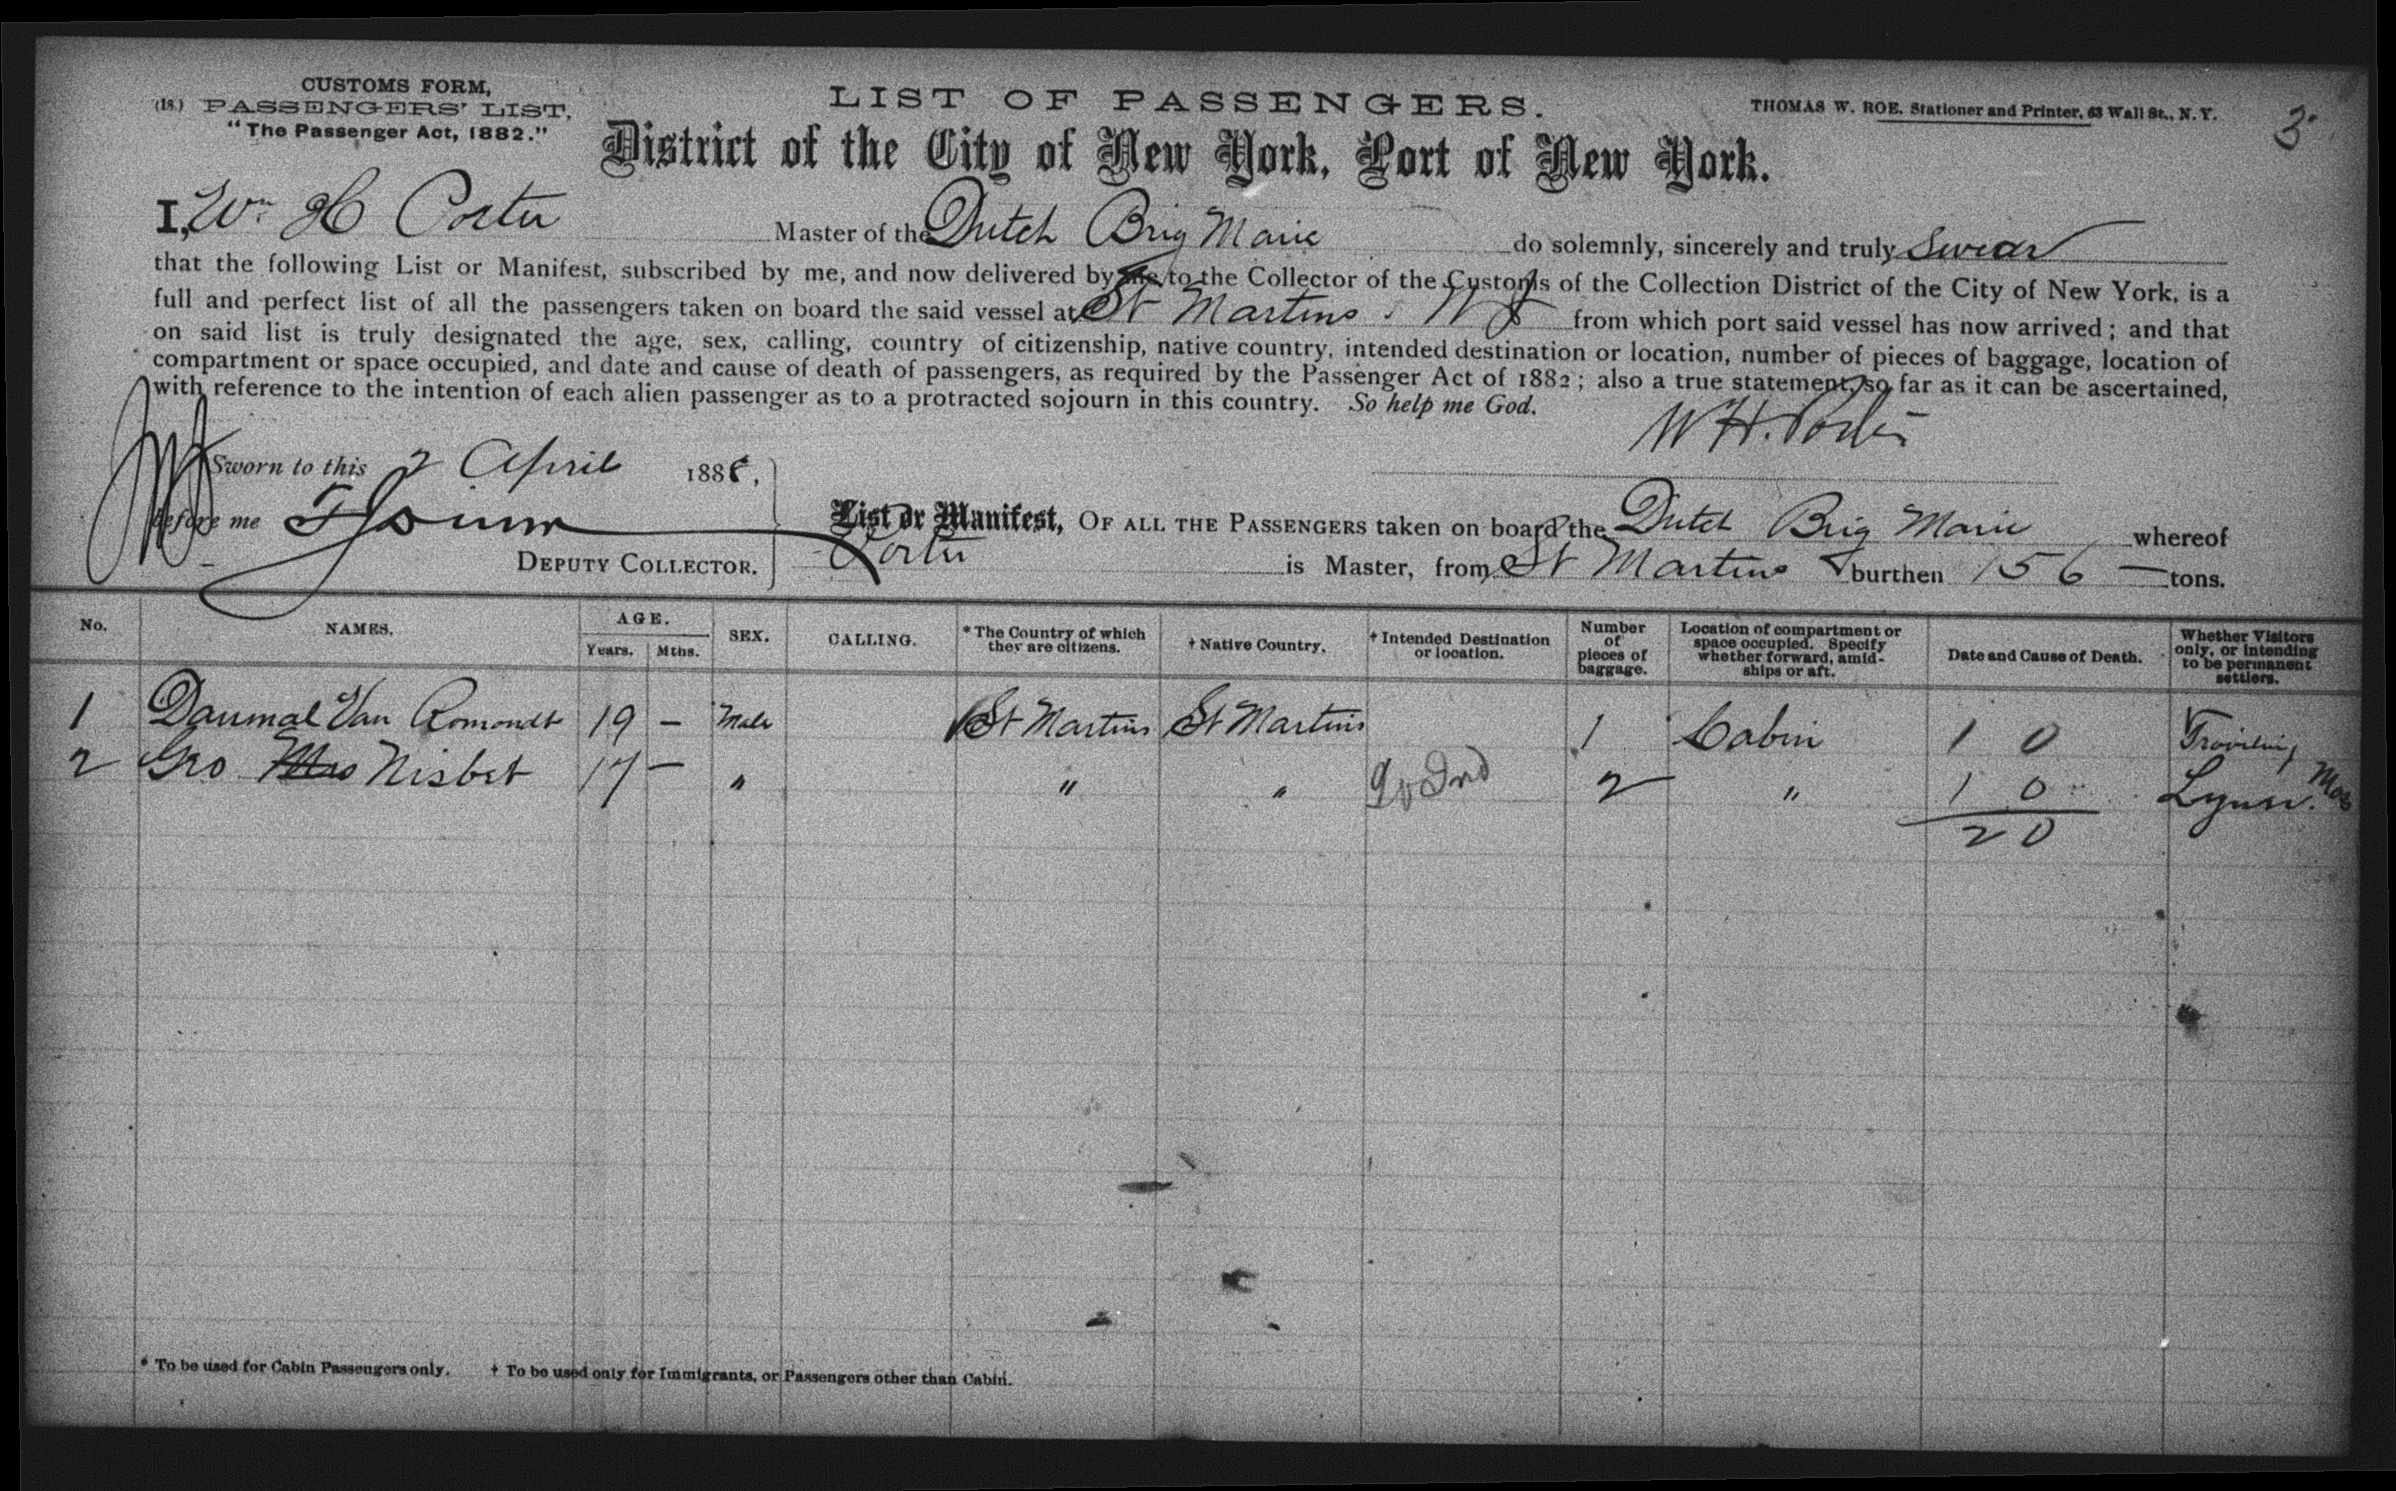 CUSTOMS FORM,
(18.) PASSENGERS' LIST,
"The Passenger Act, 1882."
LIST OF PASSENGERS.
THOMAS W. ROE, Stationer and Printer, 63 Wall St., N. Y.
3
District of the City of New York, Port of New York.
I, Wm H Porter Master of the Dutch Brig Marie do solemnly, sincerely and truly Swear
that the following List or Manifest, subscribed by me, and now delivered by me to the Collector of the Customs of the Collection District of the City of New York, is a
full and perfect list of all the passengers taken on board the said vessel at St Martins. W I from which port said vessel has now arrived; and that
on said list is truly designated the age, sex, calling, country of citizenship, native country, intended destination or location, number of pieces of baggage, location of
compartment or space occupied, and date and cause of death of passengers, as required by the Passenger Act of 1882; also a true statement, so far as it can be ascertained,
with reference to the intention of each alien passenger as to a protracted sojourn in this country. So help me God.
W H. Porter
Sworn to this 2 April 188
before me
DEPUTY COLLECTOR.
List or Manifest, OF ALL THE PASSENGERS taken on board the Dutch Brig Marie whereof
Porter is Master, from St Martins burthen 156 — tons.
No. NAMES. AGE. Years. Mths. SEX. CALLING. * The Country of which they are citizens. † Native Country. † Intended Destination or location. Number of pieces of baggage. Location of compartment or space occupied. Specify whether forward, amidships or aft. Date and Cause of Death. Whether Visitors only, or intending to be permanent settlers.
1 Van Romondt 19 — Male St Martins St Martins 1 Cabin 1 0
2 Geo Nisbet 17 — " " " 2 " 1 0 Lynn. Mas
2 0
* To be used for Cabin Passengers only. † To be used only for Immigrants, or Passengers other than Cabin.